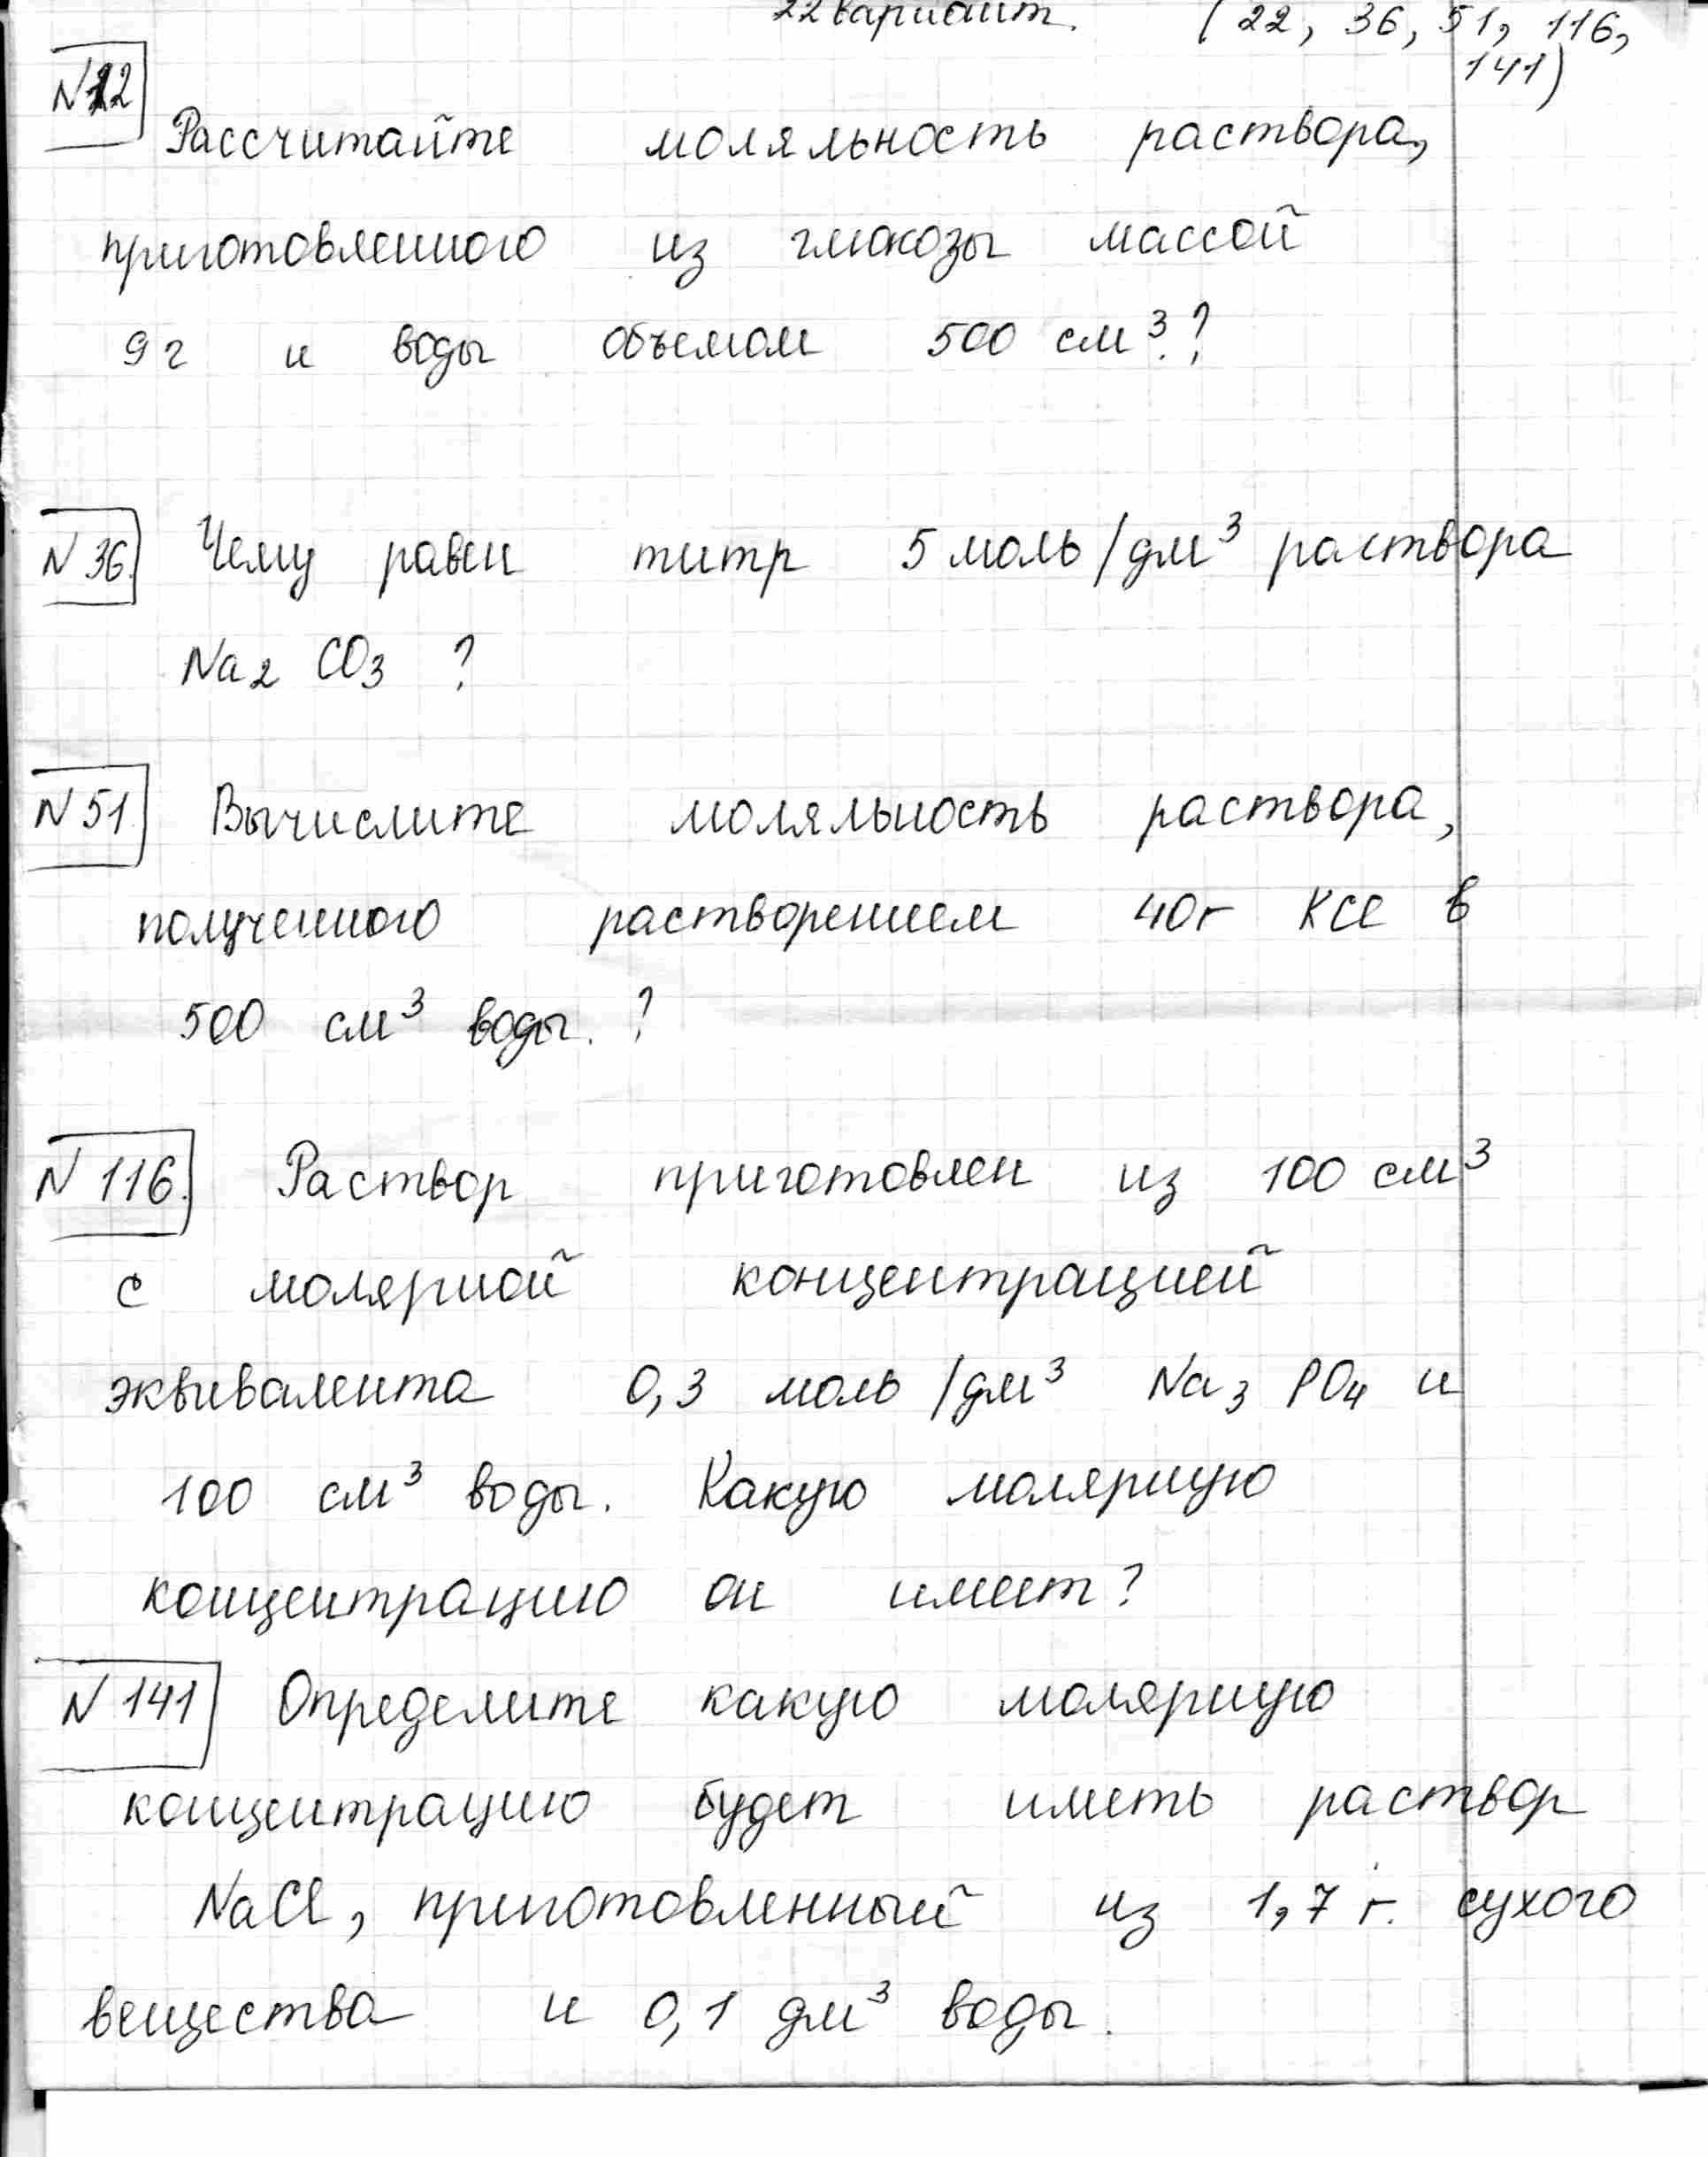 22 вариант. (22, 36, 51, 116,
141)
N22
Рассчитайте моляльность раствора,
приготовленного из глюкозы массой
9 г и воды объемом 500 см³.?
N 36. Чему равен титр 5 моль/дм³ раствора
Na₂ CO₃ ?
N 51 Вычислите моляльность раствора,
полученного растворением 40г KCl в
500 см³ воды. ?
N 116. Раствор приготовлен из 100 см³
с молярной концентрацией
эквивалента 0,3 моль/дм³ Na₃ PO₄ и
100 см³ воды. Какую молярную
концентрацию он имеет?
N 141 Определите какую молярную
концентрацию будет иметь раствор
NaCl, приготовленный из 1,7 г. сухого
вещества и 0,1 дм³ воды.